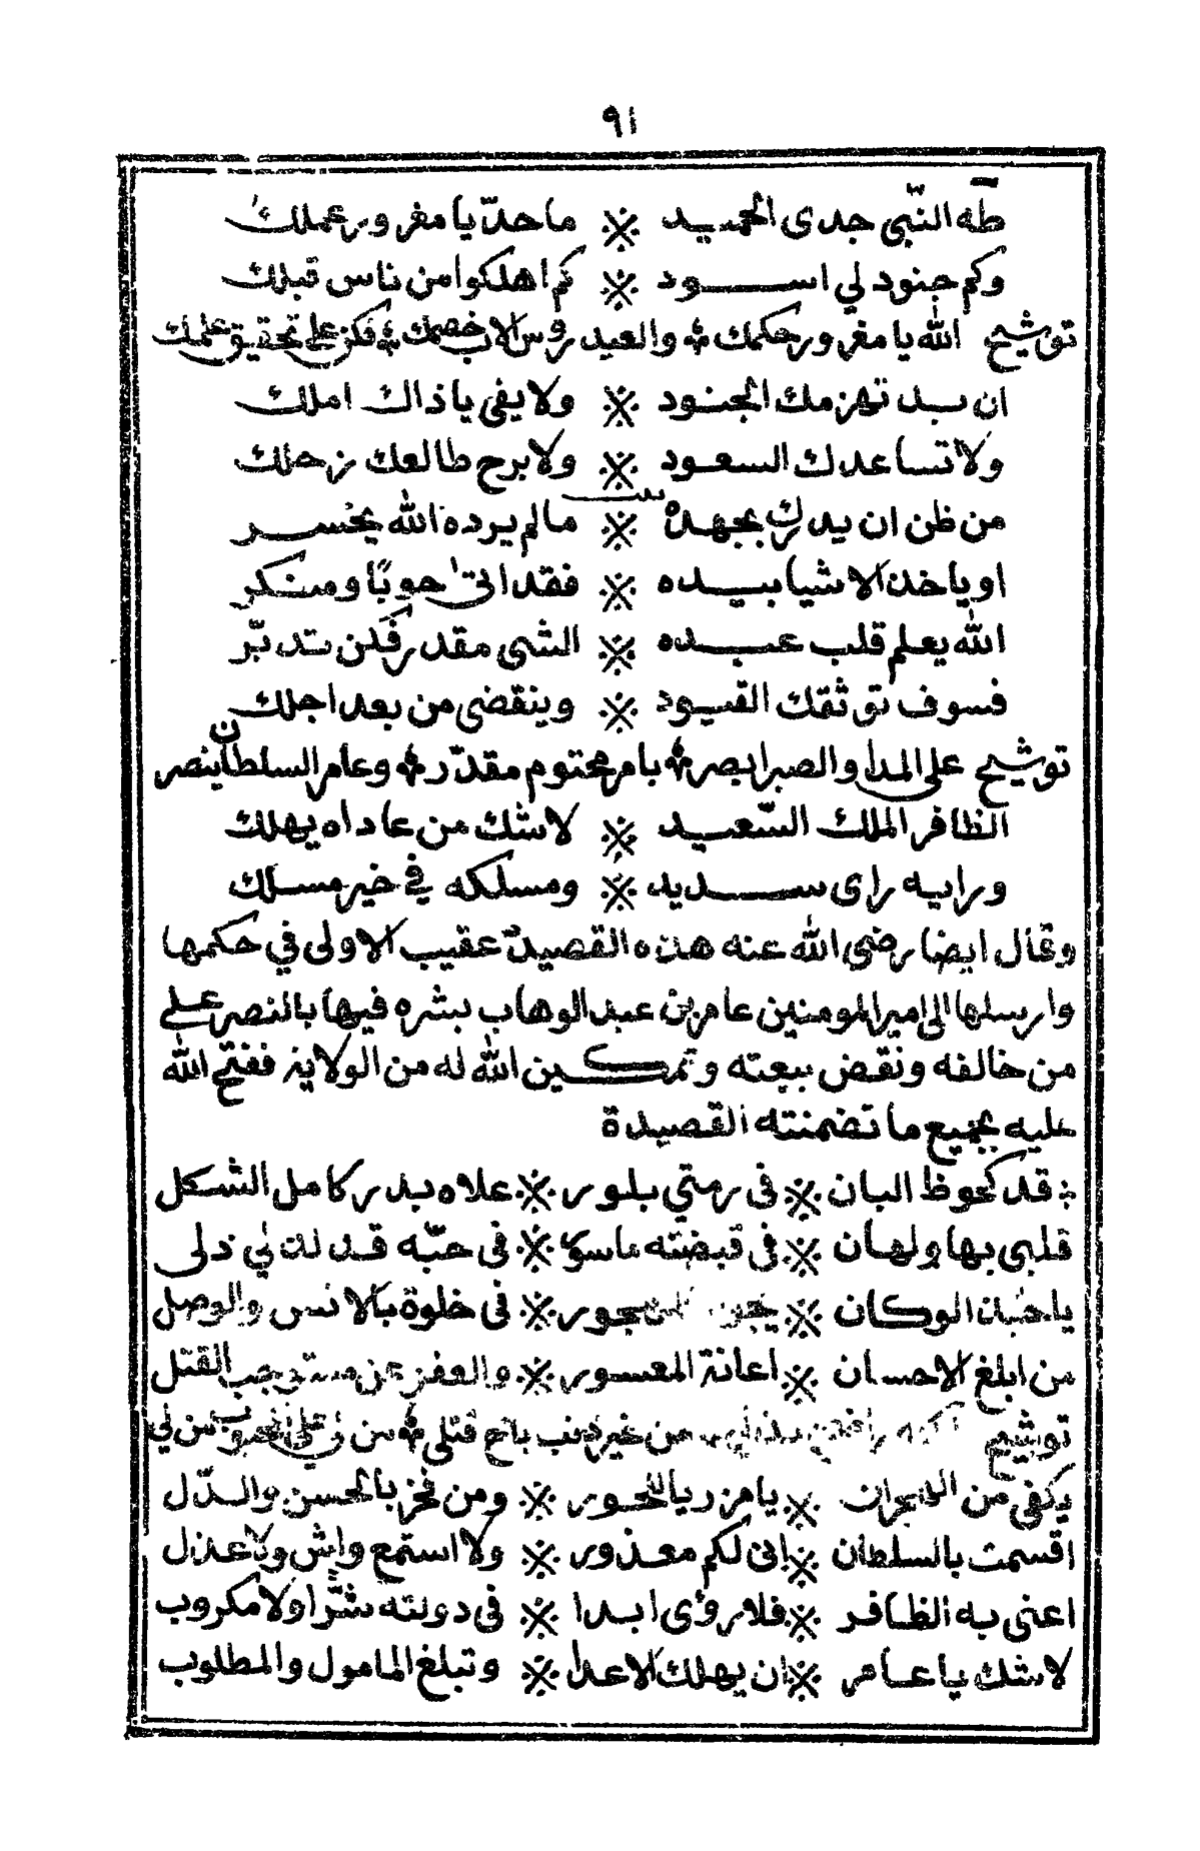 ٩١
طه النّبي جدى الحميد ※ ما حدّ يا مغرور عملك
وكم جنود لي اسود ※ كم اهلكوا من ناس قبلك
توشيح الله يا مغرور حكمك ※ والعيدروس الاب خصمك ※ فكن على تحقيق علمك
ان بد تهزمك الجنود ※ ولا يفى يا ذاك املك
ولا تساعدك السعود ※ ولا برح طالعك زحلك
من ظن ان يدرك بجهده ※ ما لم يرده الله يخسر
او ياخذ الاشيا بيده ※ فقد اتى حوبًا ومنكر
الله يعلم قلب عبده ※ الشى مقدر فكن تدبّر
فسوف توثقك القيود ※ وينقضى من بعد اجلك
توشيح على المدا والصبر ابصر ※ بامر محتوم مقدّر ※ وعامر السلطان ينصر
الظافر الملك السّعيد ※ لا شك من عاداه يهلك
ورايه راى سديد ※ ومسلكه في خير مسلك
وقال ايضا رضى الله عنه هذه القصيدة عقيب الاولى في حكمها
وارسلها الى امير المومنين عامر بن عبد الوهاب بشره فيها بالنصر على
من خالفه ونقض بيعته وتمكين الله له من الولاية ففتح الله
عليه بجميع ما تضمنته القصيدة
قد كخوظ البان ※ فى رمتي بلور ※ علاه بدر كامل الشكل
قلبى بها ولهان ※ فى قبضته ماسور ※ فى حبّه قد لذ لي ذلى
يا حبذا لو كان ※ فى خلوة بالانس والوصل
من ابلغ الاحسان ※ اعانة المعسور ※ والعفو عن مستوجب القتل
توشيح من غير ذنب باح قتلى ※ من لي على المحبوب من لي
يكفى من الهجران ※ يا مزريا للحور ※ ومن فخر بالحسن والدّل
اقسمت بالسلطان ※ انى لكم معذور ※ ولا استمع واش ولا عذل
اعنى به الظافر ※ فلا رؤى ابدا ※ فى دولته شرّا ولا مكروب
لا شك يا عامر ※ ان يهلك الاعدا ※ وتبلغ المامول والمطلوب